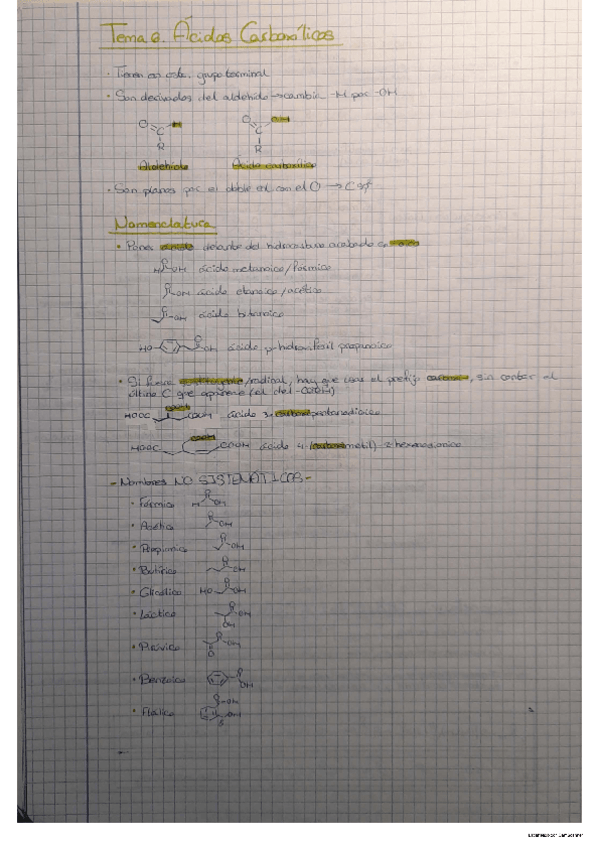 Tema 6. Ácidos Carboxílicos
· Tienen en cola. grupo terminal
· Son derivados del aldehído → cambia -H por -OH
O H O OH
C C
R R
Aldehído Ácido carboxílico
· Son planos por el doble enl con el O → C sp²
Nomenclatura
· Poner ácido delante del hidrocarburo acabado en -oico
H OH ácido metanoico/fórmico
OH ácido etanoico/acético
OH ácido butanoico
HO OH ácido p-hidroxifenil propanoico
· Si fuera sustituyente/radical, hay que usar el prefijo carboxi-, sin contar el
último C que aparece (el del -COOH)
COOH
HOOC COOH ácido 3-carboxipentanodioico
COOH
HOOC COOH ácido 4-(carboximetil)-2-hexenodioico
- Nombres NO SISTEMÁTICOS -
· Fórmico H OH
· Acético OH
· Propionico OH
· Butírico OH
· Glicólico HO OH
· Láctico OH
OH
· Pirúvico OH
O
· Benzoico
OH
· Ftálico OH
OH